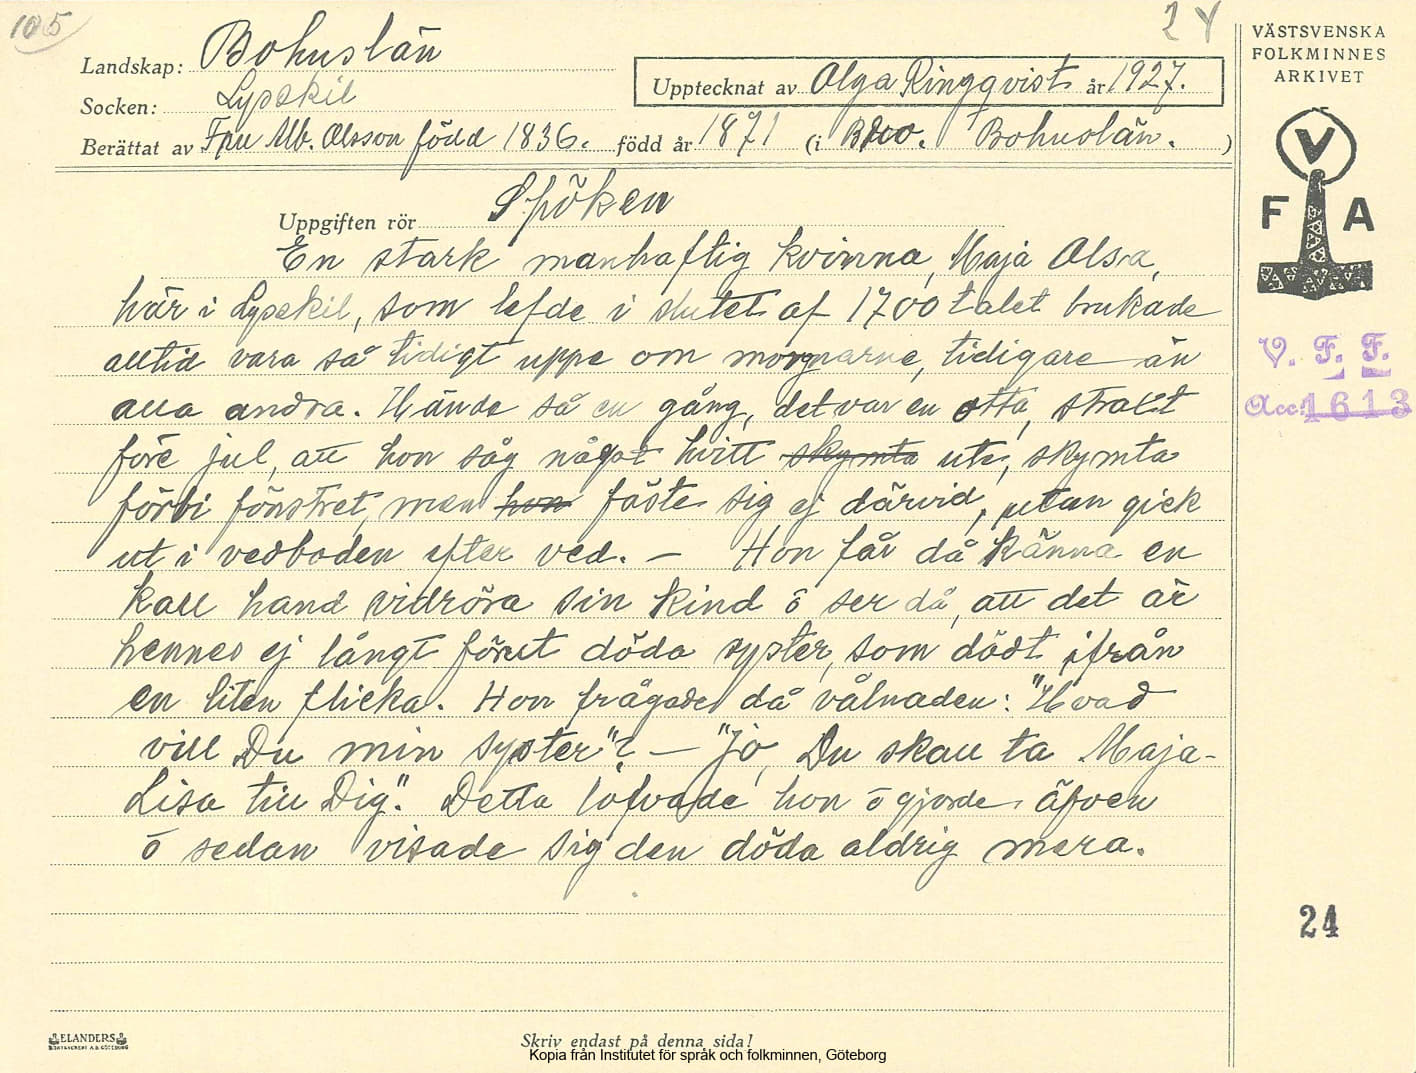 105
24
Landskap: Bohuslän
Socken: Lysekil
Upptecknat av Olga Ringqvist år 1927.
Berättat av Fru Alb. Olsson född 1836. född år 1871 (i Bro. Bohuslän. )
Uppgiften rör Spöken
En stark manhaftig kvinna, Maja Olsa,
här i Lysekil, som lefde i slutet af 1700talet brukade
alltid vara så tidigt uppe om morgnarne, tidigare än
alla andra. Hände så en gång, det var en otta, strakt
före jul, att hon såg något hvitt skymta ute, skymta
förbi fönstret, men hon fäste sig ej därvid, utan gick
ut i vedboden efter ved. — Hon får då känna en
kall hand vidröra sin kind ō ser då, att det är
hennes ej långt förut döda syster, som dödt ifrån
en liten flicka. Hon frågade då vålnaden: "Hvad
vill Du min syster"? — "Jo, Du skall ta Maja-
Lisa till Dig". Detta lofvade hon ō gjorde äfven
ō sedan visade sig den döda aldrig mera.
VÄSTSVENSKA
FOLKMINNES
ARKIVET
V
F A
V. F. F.
Acc. 1613
24
ELANDERS
Skriv endast på denna sida!
Kopia från Institutet för språk och folkminnen, Göteborg